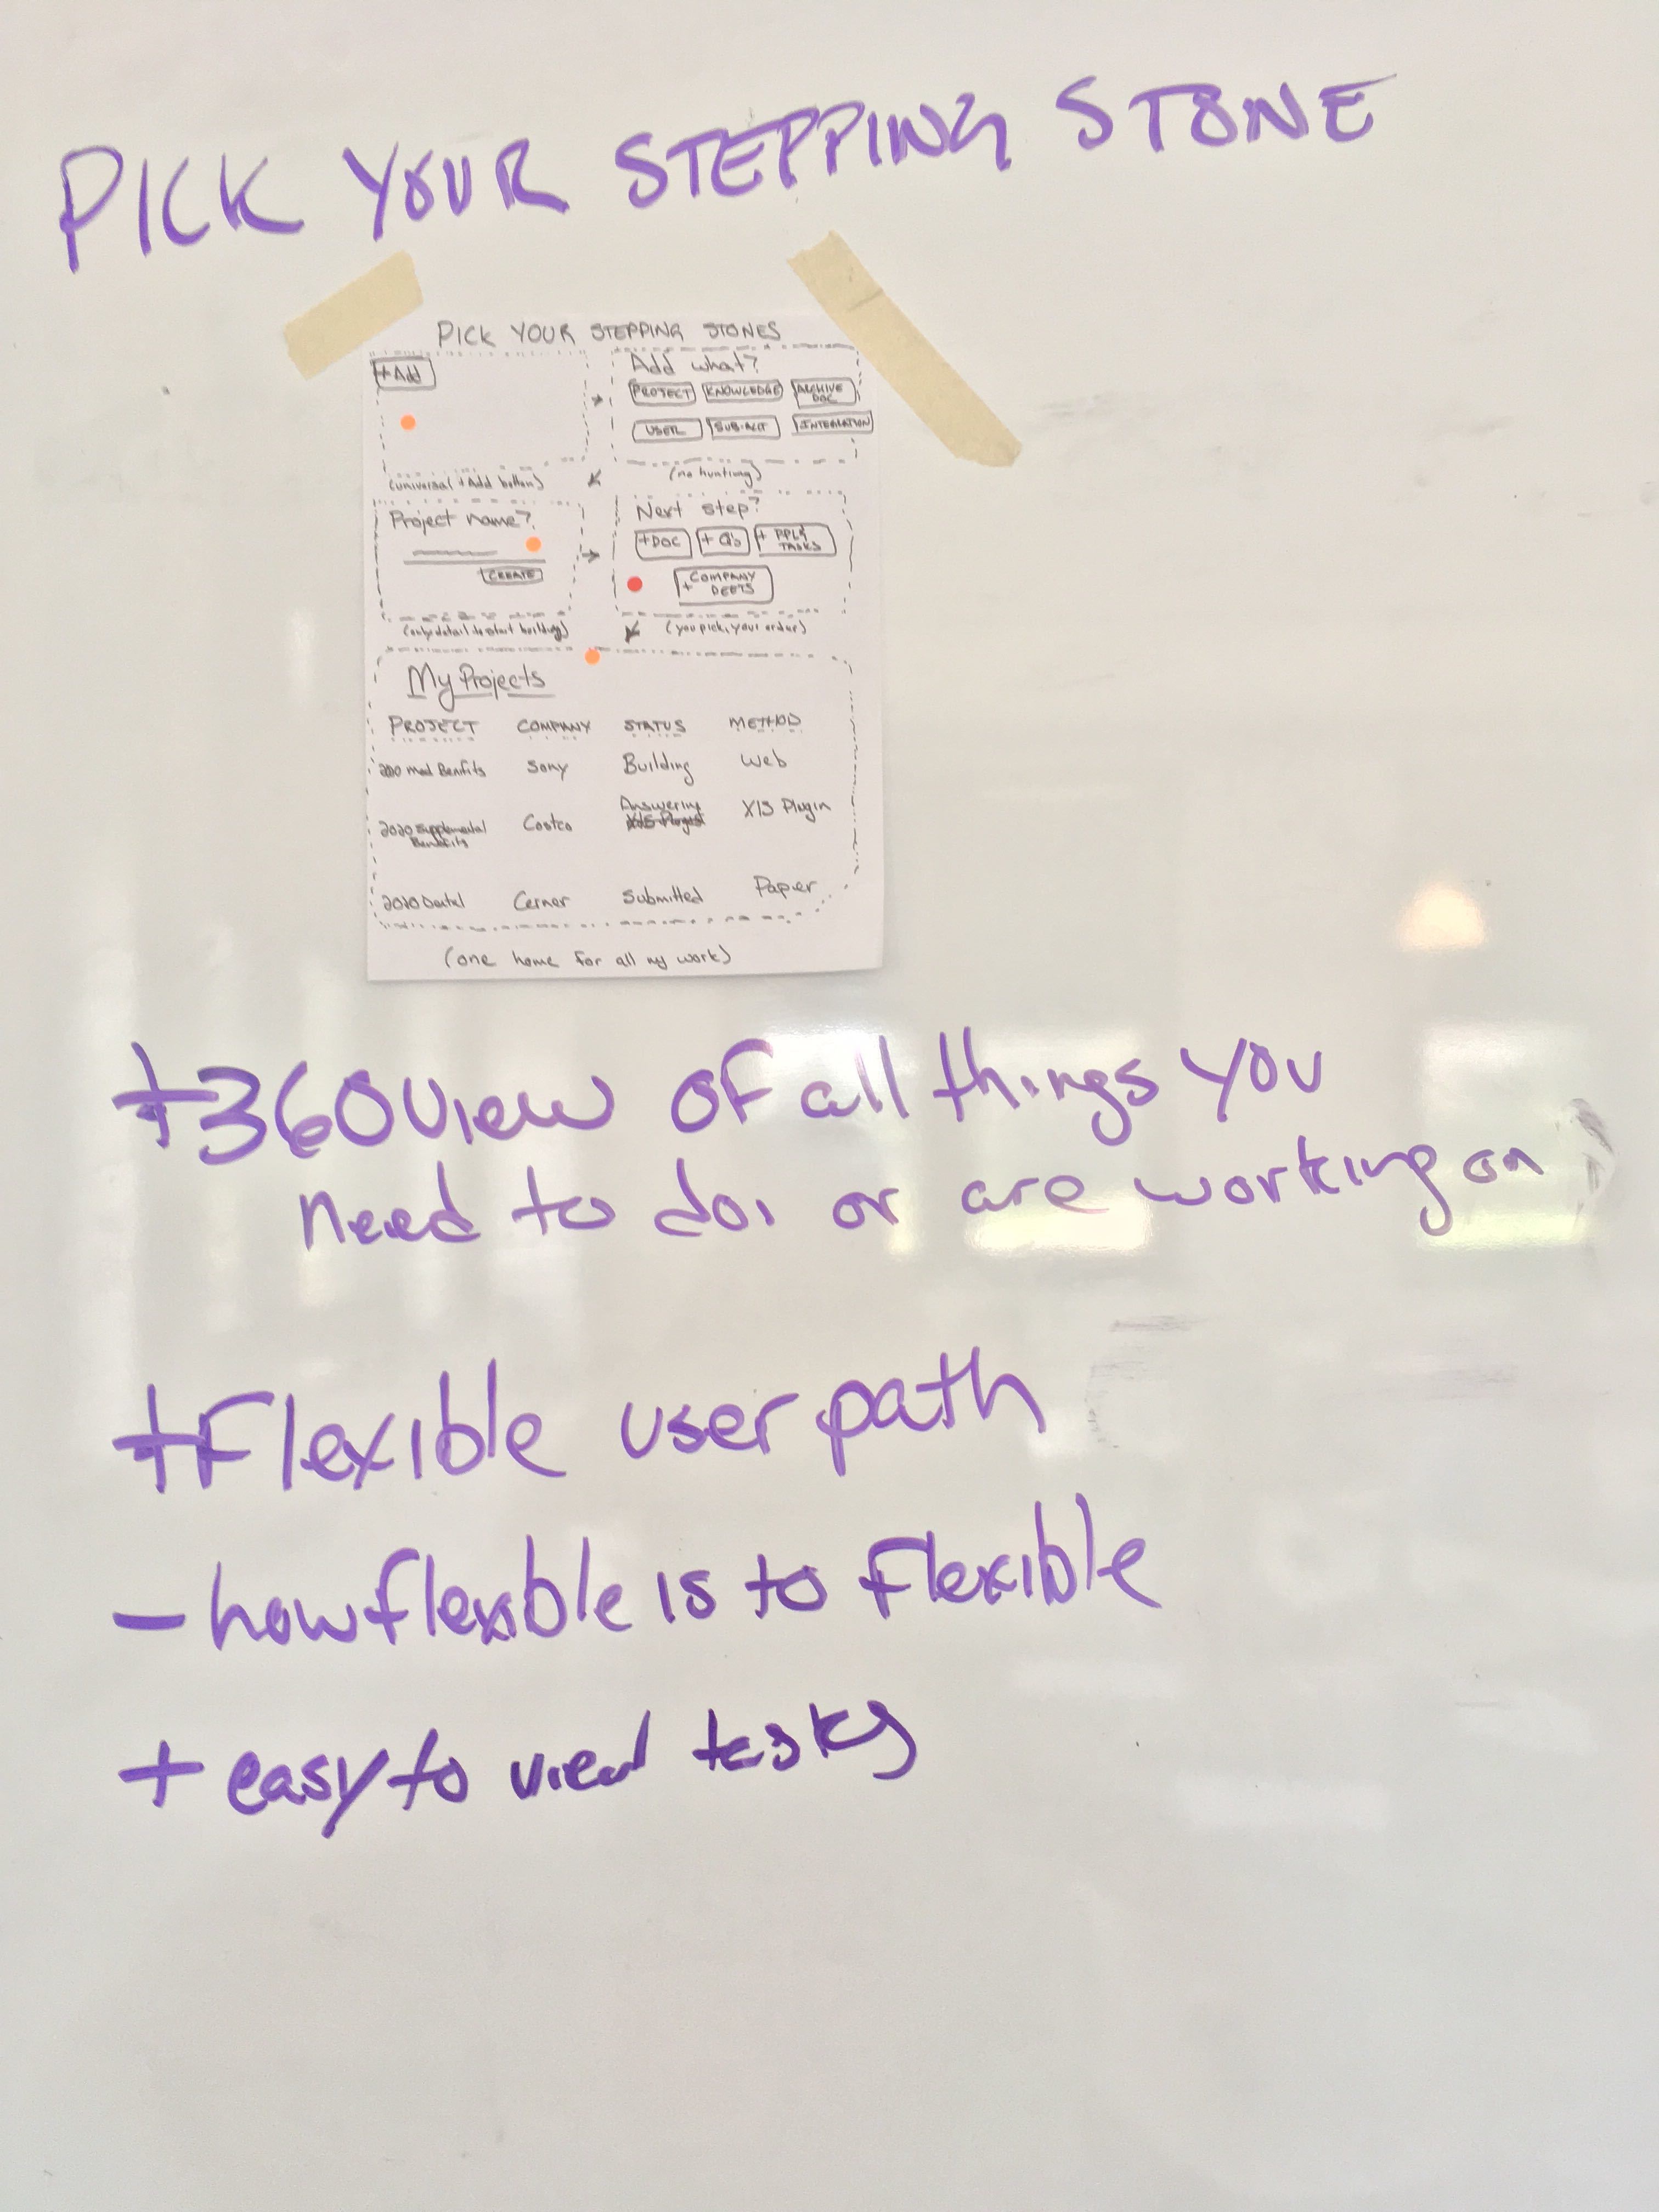 PICK YOUR STEPPING STONE
PICK YOUR STEPPING STONES
+Add
(universal +Add button)
Add what?
PROJECT KNOWLEDGE ARCHIVE DOC
USER SUB-ACCT INTEGRATION
(no hunting)
Project name?
CREATE
(only detail to start building)
Next step?
+DOC + Qs + PPL & TASKS
+ COMPANY DEETS
(you pick, your order)
My Projects
PROJECT COMPANY STATUS METHOD
Med Benefits Sony Building Web
2020 Supplemental Benefits Costco Answering XIS Plugin
2020 Dental Cerner Submitted Paper
(one home for all my work)
+360 view of all things you
need to do, or are working on
+Flexible user path
- how flexible is to flexible
+ easy to view tasks